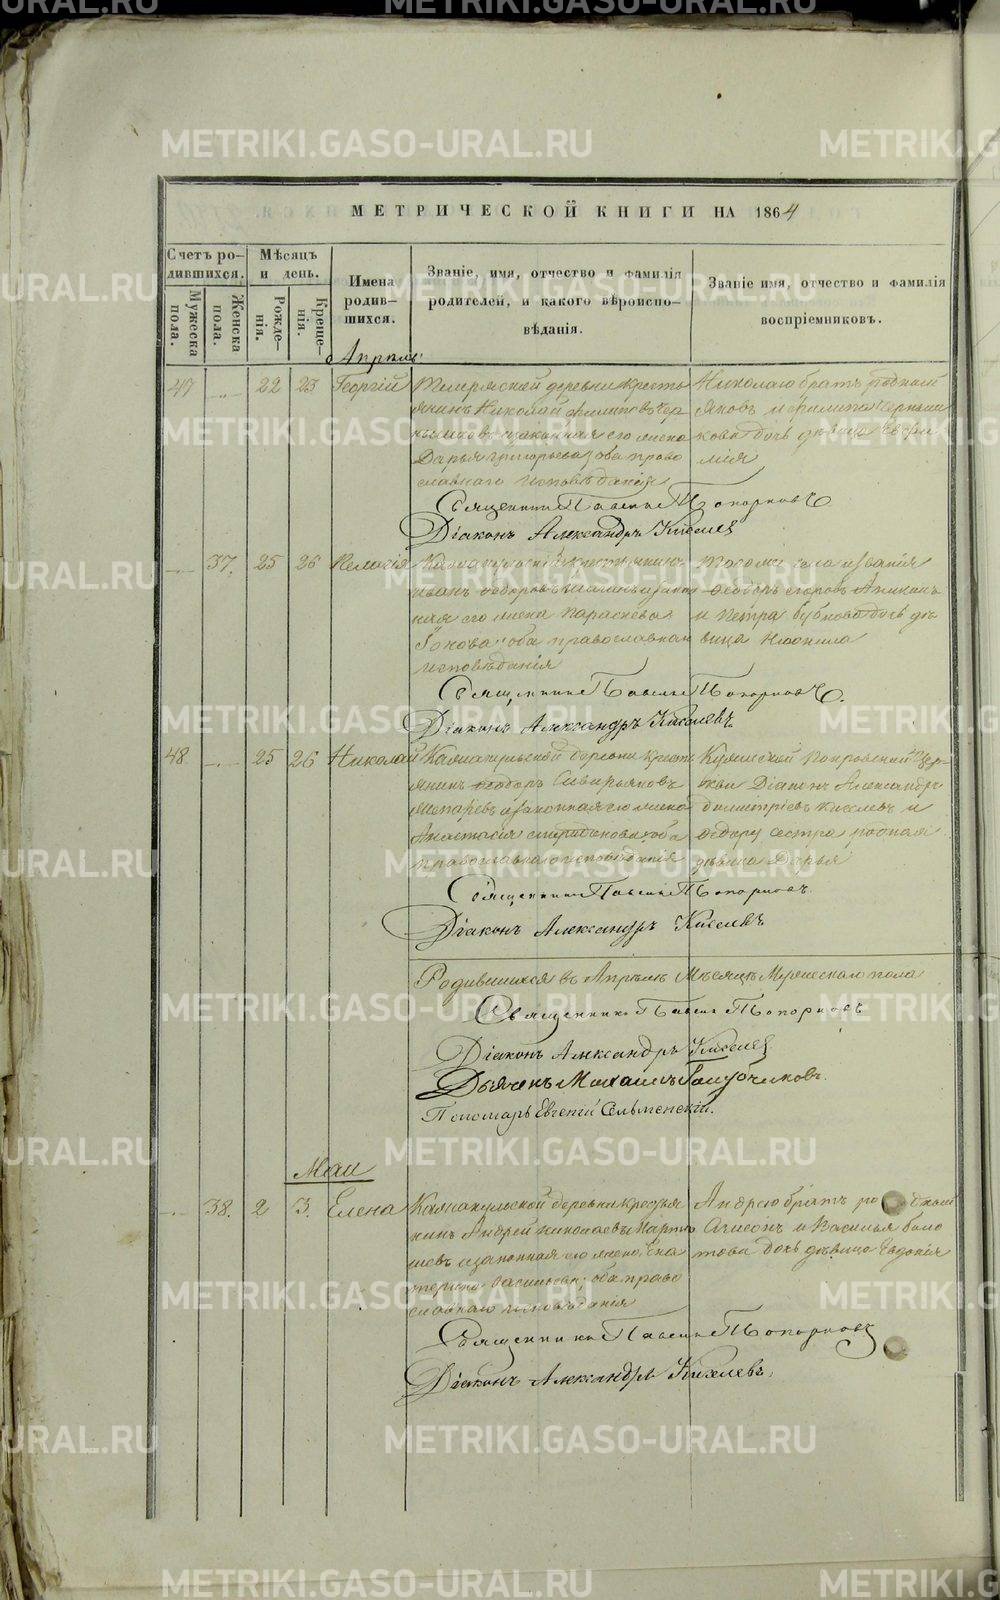 METRIKI.GASO-URAL.RU
МЕТРИЧЕСКОЙ КНИГИ НА 1864
Счетъ родившихся.
Мѣсяцъ и день.
Имена родившихся.
Званіе, имя, отчество и фамилія родителей, и какого вѣроисповѣданія.
Званіе имя, отчество и фамилія воспріемниковъ.
Мужеска пола.
Женска пола.
Рожденія.
Крещенія.
Апрѣль
47 22 23 Георгій
деревни кресть
янинъ Николай Филиповъ
законная его жена
Дарья Григорьева оба право
славнаго исповѣданія
Николаю братъ родной
Яковъ и Филипа
кова дочь дѣвица Евфи
мія
Священникъ Павелъ Топорковъ
Діаконъ Александръ Киселевъ
37. 25 26 Пелагія
Иванъ Федоровъ
ная его жена Парасковья
оба православнаго
исповѣданія
Федоръ Егоровъ
и Петра дочь дѣ
вица
Священникъ Павелъ Топорковъ.
Діаконъ Александръ Киселевъ
48 25 26 Николай
деревни кресть
янинъ Федоръ
законная его жена
Анастасія Спиридонова оба
православнаго исповѣданія
Покровской Цер-
кви Діаконъ Александръ
Димитріевъ Киселевъ и
Федору сестра родная
дѣвица Дарья
Священникъ Павелъ Топорковъ.
Діаконъ Александръ Киселевъ
Родившихся въ Апрѣлѣ Мѣсяцѣ Мужескаго пола
Священникъ Павелъ Топорковъ
Діаконъ Александръ Киселев
Дьячекъ Михаилъ Голубчиковъ.
Пономарь Евгеній Сельменскій.
Маи
38. 2 3. Елена
деревни крестья
нинъ Андрей Николаевъ Марть
законная его жена Ека
терина Васильева, оба право
славнаго исповѣданія
Андрею братъ родной
и Василья Боло
това дочь дѣвица Евдокія
Священникъ Павелъ Топорковъ
Діаконъ Александръ Киселевъ.